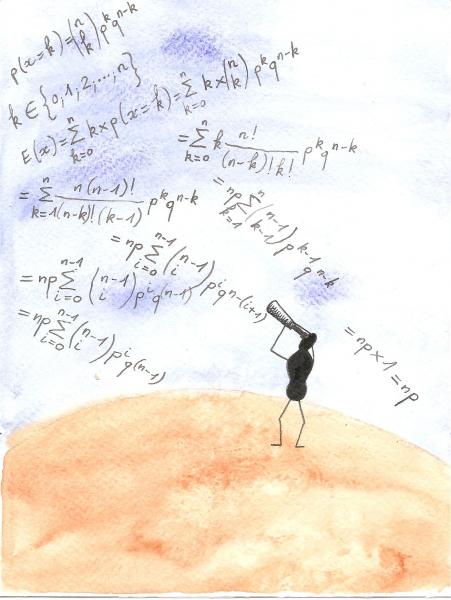 p(x=k)=(n k)p^k q^{n-k}
k∈{0,1,2,...,n}
E(x)=∑_{k=0}^{n} k×p(x=k)=∑_{k=0}^{n} k×(n k)p^k q^{n-k}
=∑_{k=0}^{n} k n!/((n-k)!k!) p^k q^{n-k}
=∑_{k=1}^{n} n(n-1)!/((n-k)!(k-1)) p^k q^{n-k}
=np∑_{k=1}^{n}(n-1 k-1)p^{k-1} q^{n-k}
=np∑_{i=0}^{n-1}(n-1 i)p^i q^{n-(i+1)}
=np∑_{i=0}^{n-1}(n-1 i)p^i q^{(n-1)}
=np∑_{i=0}^{n-1}(n-1 i)p^i q^{(n-1)}
=np×1=np